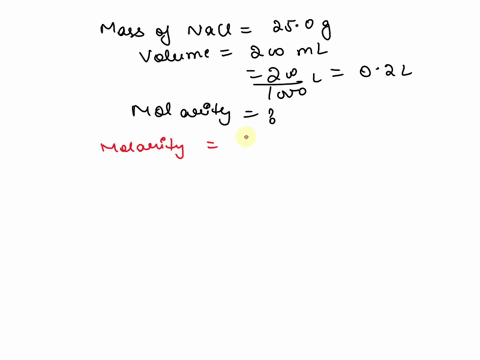 Mass of NaCl = 25.0 g
Volume = 200 mL
= 200/1000 L = 0.2L
Molarity = ?
Molarity =